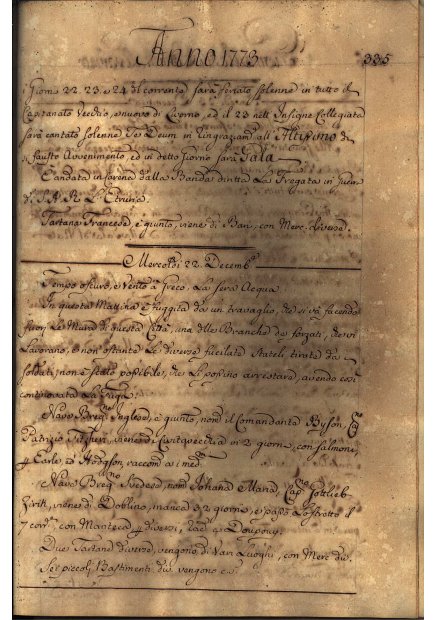 Anno 1773
335
i Giorni 22. 23. e 24 del corrente sarà feriato solenne in tutto il
Capitanato Vecchio, e nuovo di Livorno, ed il 23 nell' Insigne Collegiata
sarà cantato solenne Te Deum in ringraziam. all' Altissimo di
sì fausto Avvenimento, ed in detto Giorno sarà Gala
È andata in dalla Banda dentro La Fregata in
di S. A. R. L' Etruria.
Tartana Francese, è giunto, viene di Bari, con Merc. diverse.
Mercoldì 22. Decemb.
Tempo oscuro, e Vento Greco. La sera Acqua.
In questa Mattina è fuggita da un travaglio, che si và facendo
fuori Le Mura di questa Città, una delle Branche de forzati, che vi
Lavorano, e non ostante Le diverse fucilate Stateli tirate da
Soldati, non è stato possibile, che si possino arrestare, avendo così
continovata La Fuga.
Nave Breg.no Inglese, è giunto, nom. il Comandante Cap.
Patrizio viene di Civitavecchia in 2 giorni, con salmone,
p Earle, ed Hodgson, raccom. a i med.
Nave Breg.no Svedese, nom. Johand Maria, Cap.no Gottlieb
viene di Doblino, manca 32 giorni, e passò Lo stretto il
7 corr. con Manteca, p diversi, racc. a
Due Tartane diverse, vengono di Vari Luoghi, con Merc. div.
Sei piccoli Bastimenti div. vengono c. s.